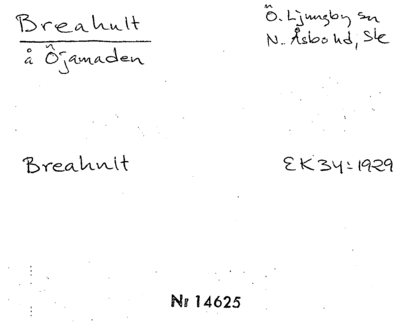 Breahult
å Öjamaden
Ö. Ljungby sn
N. Åsbo hd, Sk
Breahult
EK34:1929
Nr 14625